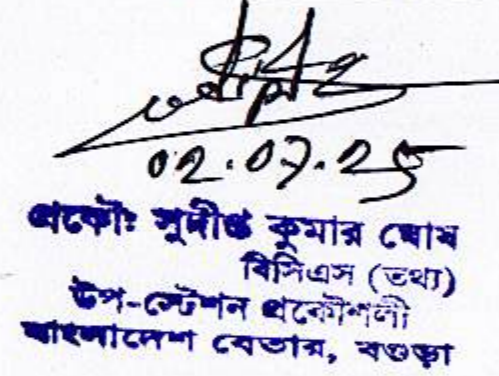 ০২.০৭.২৫
প্রকৌঃ সুদীপ্ত কুমার ঘোষ
বিসিএস (তথ্য)
উপ-স্টেশন প্রকৌশলী
বাংলাদেশ বেতার, বগুড়া